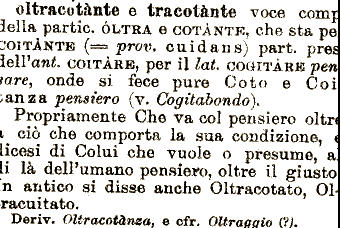 oltracotànte e tracotànte voce comp
della partic. ÓLTRA e COTÀNTE, che sta pe
COITÀNTE (= prov. cuidans) part. pres
dell'ant. COITÀRE, per il lat. COGITÀRE pen
sare, onde si fece pure Coto e Coi
tanza pensiero (v. Cogitabondo).
Propriamente Che va col pensiero oltre
a ciò che comporta la sua condizione, e
dicesi di Colui che vuole o presume, a
di là dell'umano pensiero, oltre il giusto
In antico si disse anche Oltracotato, Ol-
tracuitato.
Deriv. Oltracotànza, e cfr. Oltraggio (?).